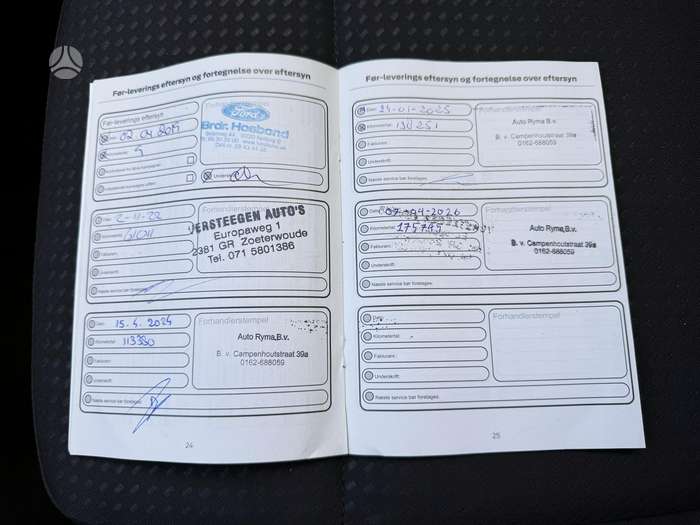 Før-leverings eftersyn og fortegnelse over eftersyn
Før-leverings eftersyn
Forhandlerstempel
Ford
Brdr. Hosband
Dato: 2-11-22
VERSTEEGEN AUTO'S
Europaweg 1
2381 GR Zoeterwoude
Tel. 071 5801386
Kilometertal:
Fakturanr.:
Underskrift:
Næste service bør foretages:
Dato: 15.4.2024
Forhandlerstempel
Kilometertal: 113330
Auto Ryma,B.v.
B. v. Campenhoutstraat 39a
0162-688059
Fakturanr.:
Underskrift:
Næste service bør foretages:
24
Før-leverings eftersyn og fortegnelse over eftersyn
Dato: 24-01-2025
Kilometertal: 130251
Auto Ryma B.v.
B. v. Campenhoutstraat 39a
0162-688059
Fakturanr.:
Underskrift:
Næste service bør foretages:
Dato: 07-04-2026
Forhandlerstempel
Kilometertal: 175745
Auto Ryma,B.v.
B. v. Campenhoutstraat 39a
0162-688059
Fakturanr.:
Underskrift:
Næste service bør foretages:
Dato:
Forhandlerstempel
Kilometertal:
Fakturanr.:
Underskrift:
Næste service bør foretages:
25